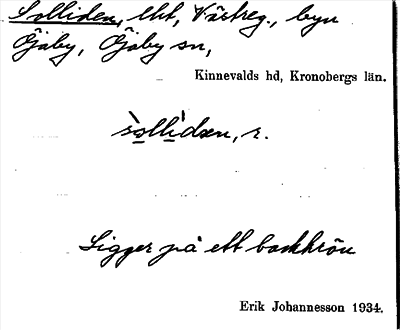 Solliden, lht, Västreg., byn
Öjaby, Öjaby sn,
Kinnevalds hd, Kronobergs län.
sòllìdæn, r.
Ligger på ett backkrön
Erik Johannesson 1934.